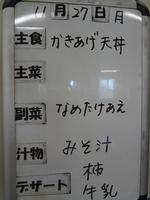 11月27日 月
主食 かきあげ天丼
主菜
副菜 なめたけあえ
汁物 みそ汁
デザート 柿
牛乳